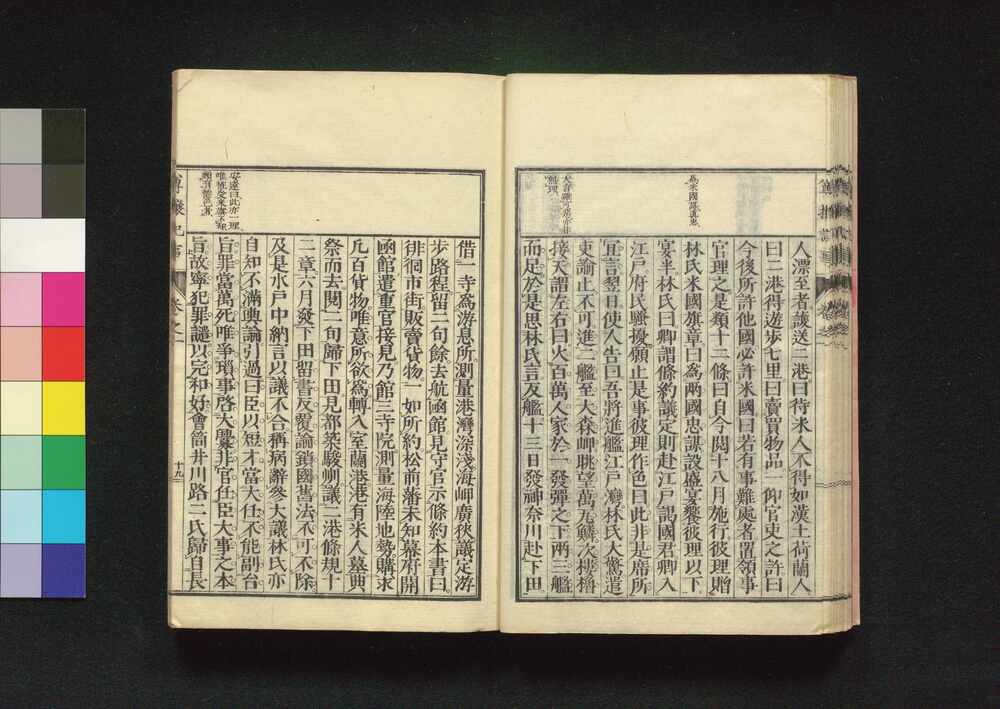 爲米國謀眞忠
人漂至者護送二港曰待米人不得如漢土荷蘭人
曰二港得遊步七里曰賣買物品一仰官吏之許曰
今後所許他國必許米國曰若有事難處者置領事
官理之是類十二條曰自今閱十八月施行彼理贈
林氏米國旗章曰爲兩國忠謀設盛宴饗彼理以下
宴半林氏曰卿謂條約議定則赴江戸謁國君卿入
江戸府民騷擾願止是事彼理作色曰此非是席所
宜言翌日使人告曰吾將進艦江戸灣林氏大驚遣
吏諭止不可進二艦至大森岬眺望萬瓦鱗次樓櫓
接天謂左右曰火百萬人家於一發彈之下兩三艦
而足於是思林氏言反艦十三日發神奈川赴下田
安遠曰此亦一理
借一寺爲游息所測量港灣深淺海岬廣狹議定游
步路程留二旬餘去航凾館見守官示條約本書曰
徘徊市街販賣貨物一如所約松前藩未知幕府開
凾館遣重官接見乃館三寺院測量海陸地勢購求
凡百貨物唯意所欲爲轉入室蘭港港有米人墓典
祭而去閱二旬歸下田見都築駿州議二港條規十
二章六月發下田留書反覆論鎖國舊法不可不除
及是水戸中納言以議不合稱病辭參大議林氏亦
自知不滿輿論引過曰臣以短才當大任不能副台
旨罪當萬死唯爭瑣事啓大釁非官任臣大事之本
旨故寧犯罪譴以完和好會筒井川路二氏歸自長
卷之一
十九